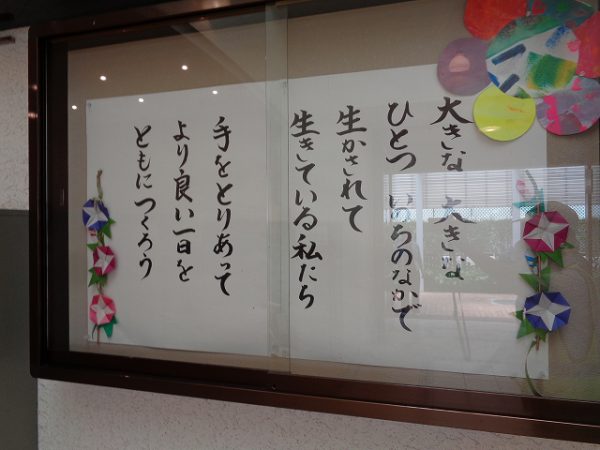 大きな 大きな
ひとつ いのちのなかで
生かされて
生きている私たち
手をとりあって
より良い一日を
ともにつくろう